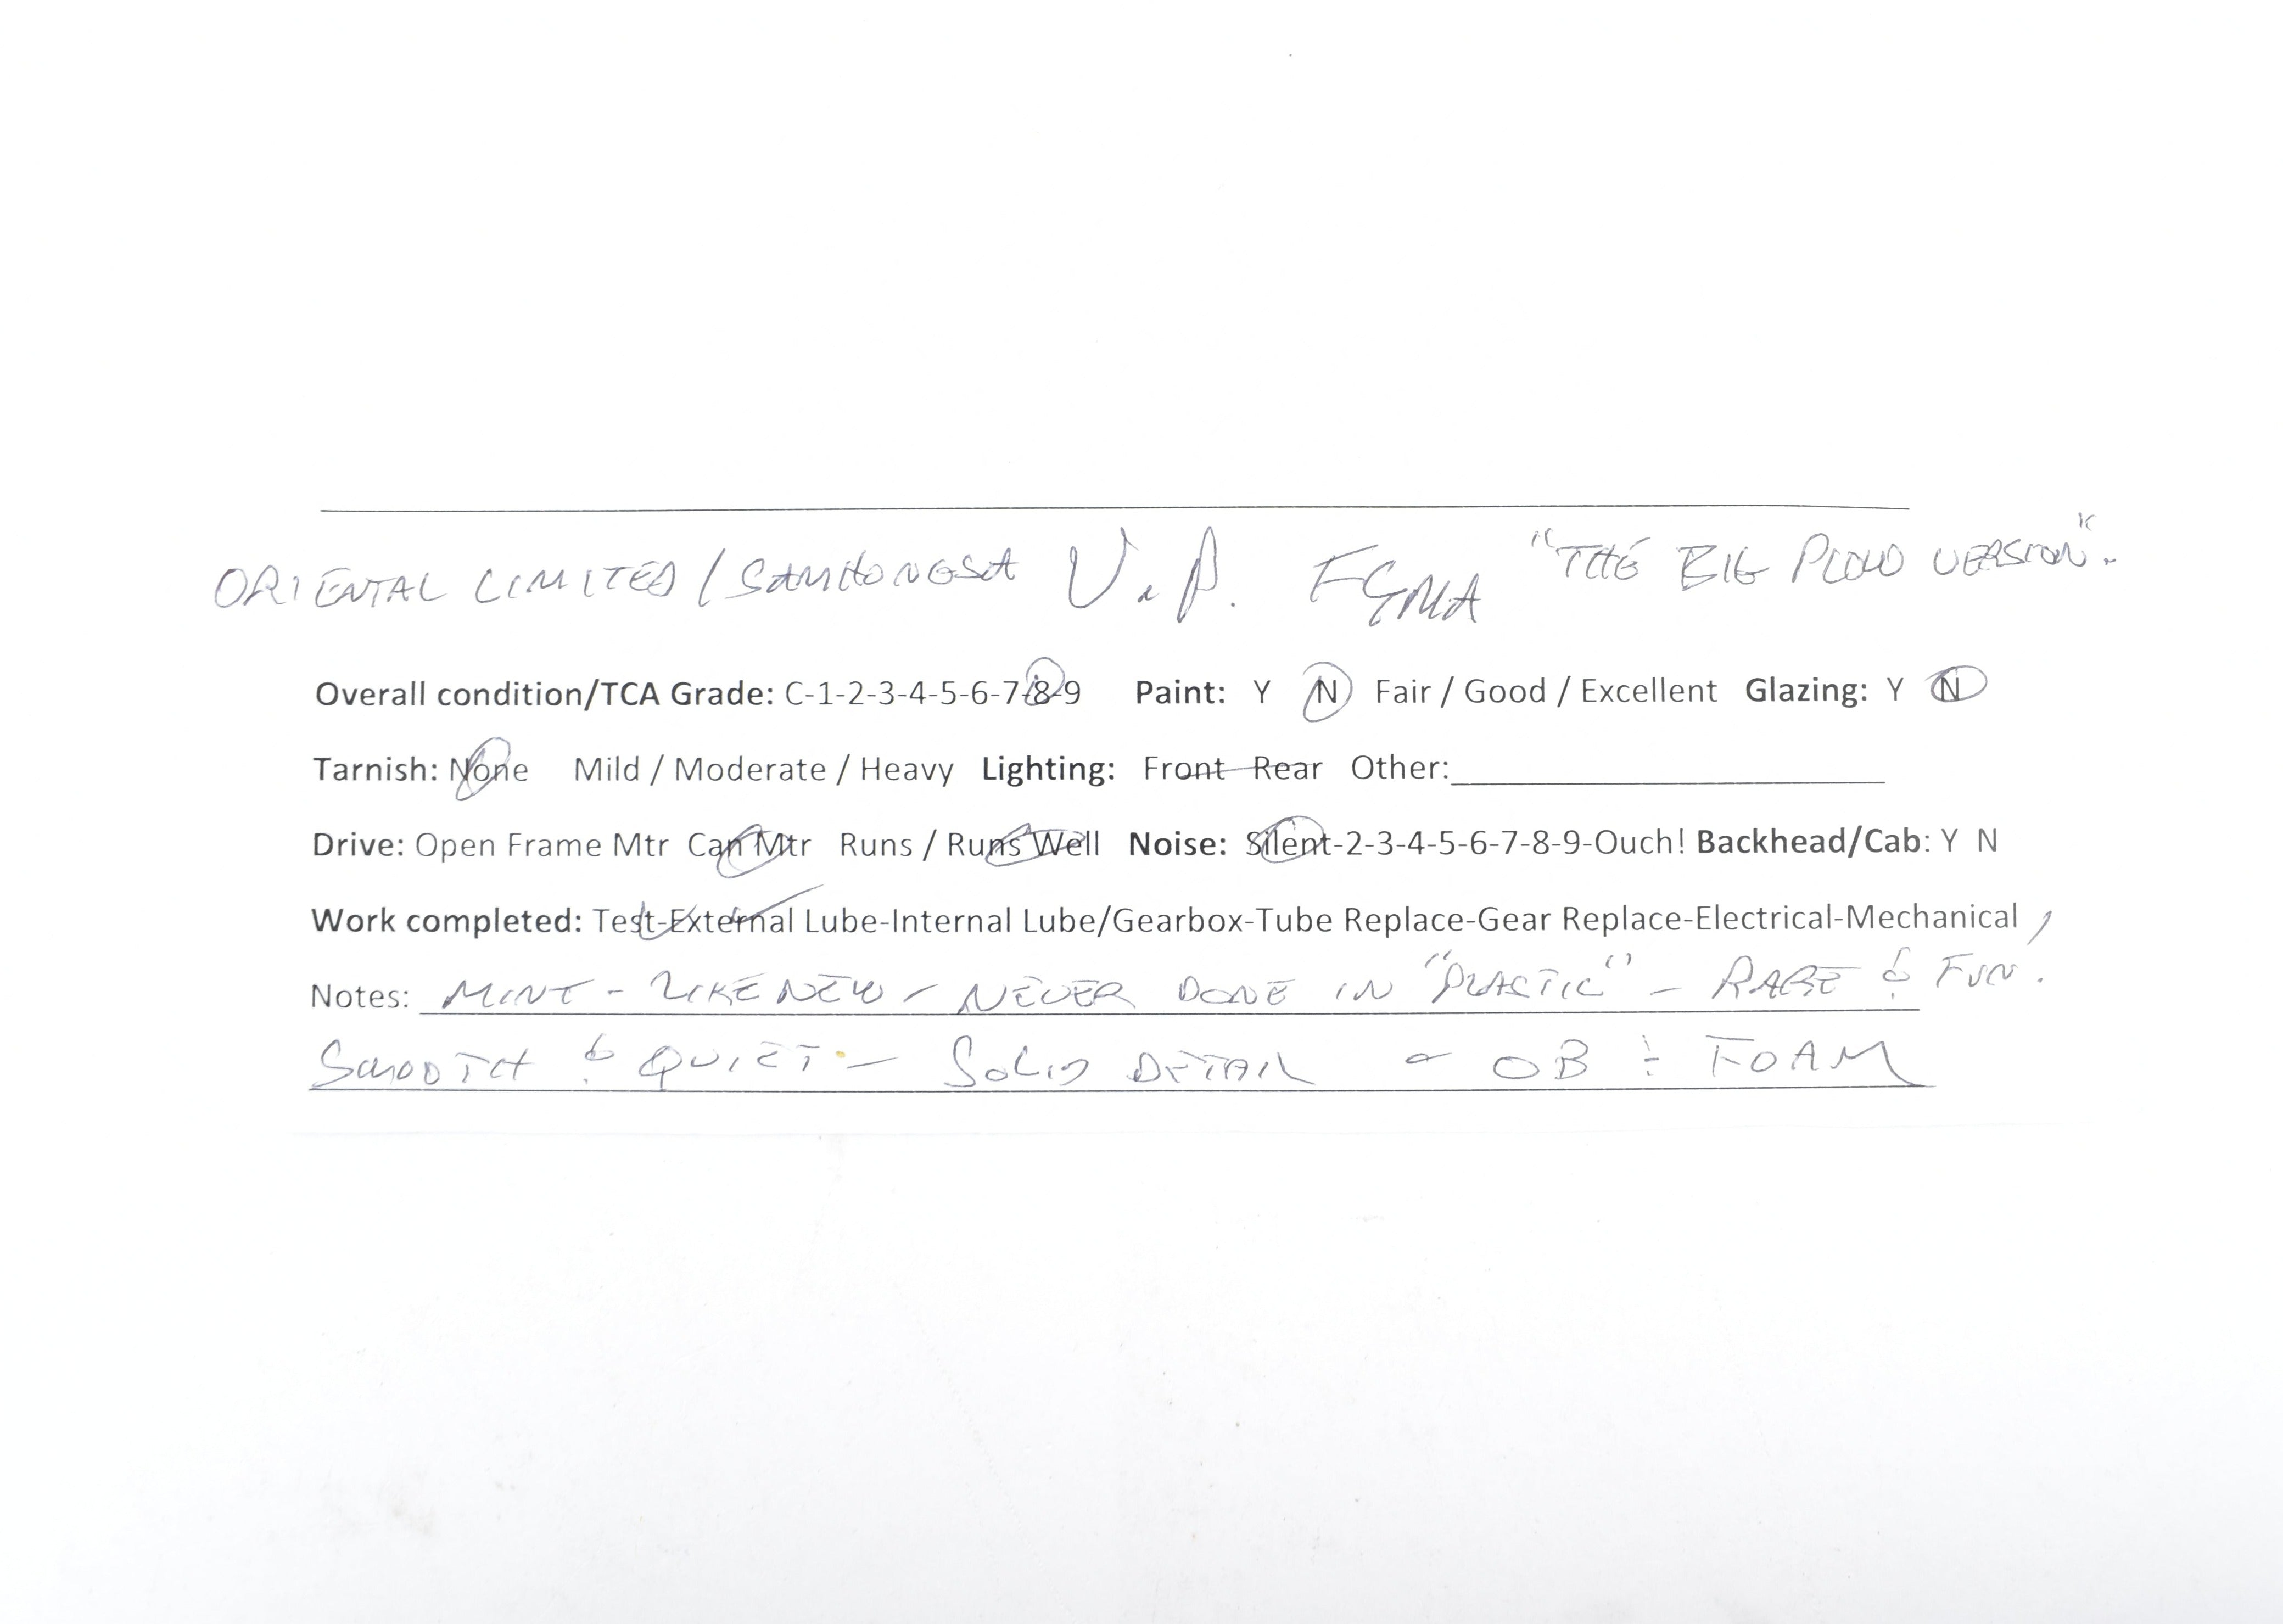 ORIENTAL LIMITED / SAMHONGSA U.P. FGMA "THE BIG PLOW VERSION".
Overall condition/TCA Grade: C-1-2-3-4-5-6-7-8-9 Paint: Y N Fair / Good / Excellent Glazing: Y N
Tarnish: None Mild / Moderate / Heavy Lighting: Front Rear Other:
Drive: Open Frame Mtr Can Mtr Runs / Runs Well Noise: Silent-2-3-4-5-6-7-8-9-Ouch! Backhead/Cab: Y N
Work completed: Test-External Lube-Internal Lube/Gearbox-Tube Replace-Gear Replace-Electrical-Mechanical
Notes: MINT - LIKE NEW - NEVER DONE IN "PLASTIC" - RARE & FUN.
SMOOTH & QUIET - SOLID DETAIL - OB & FOAM